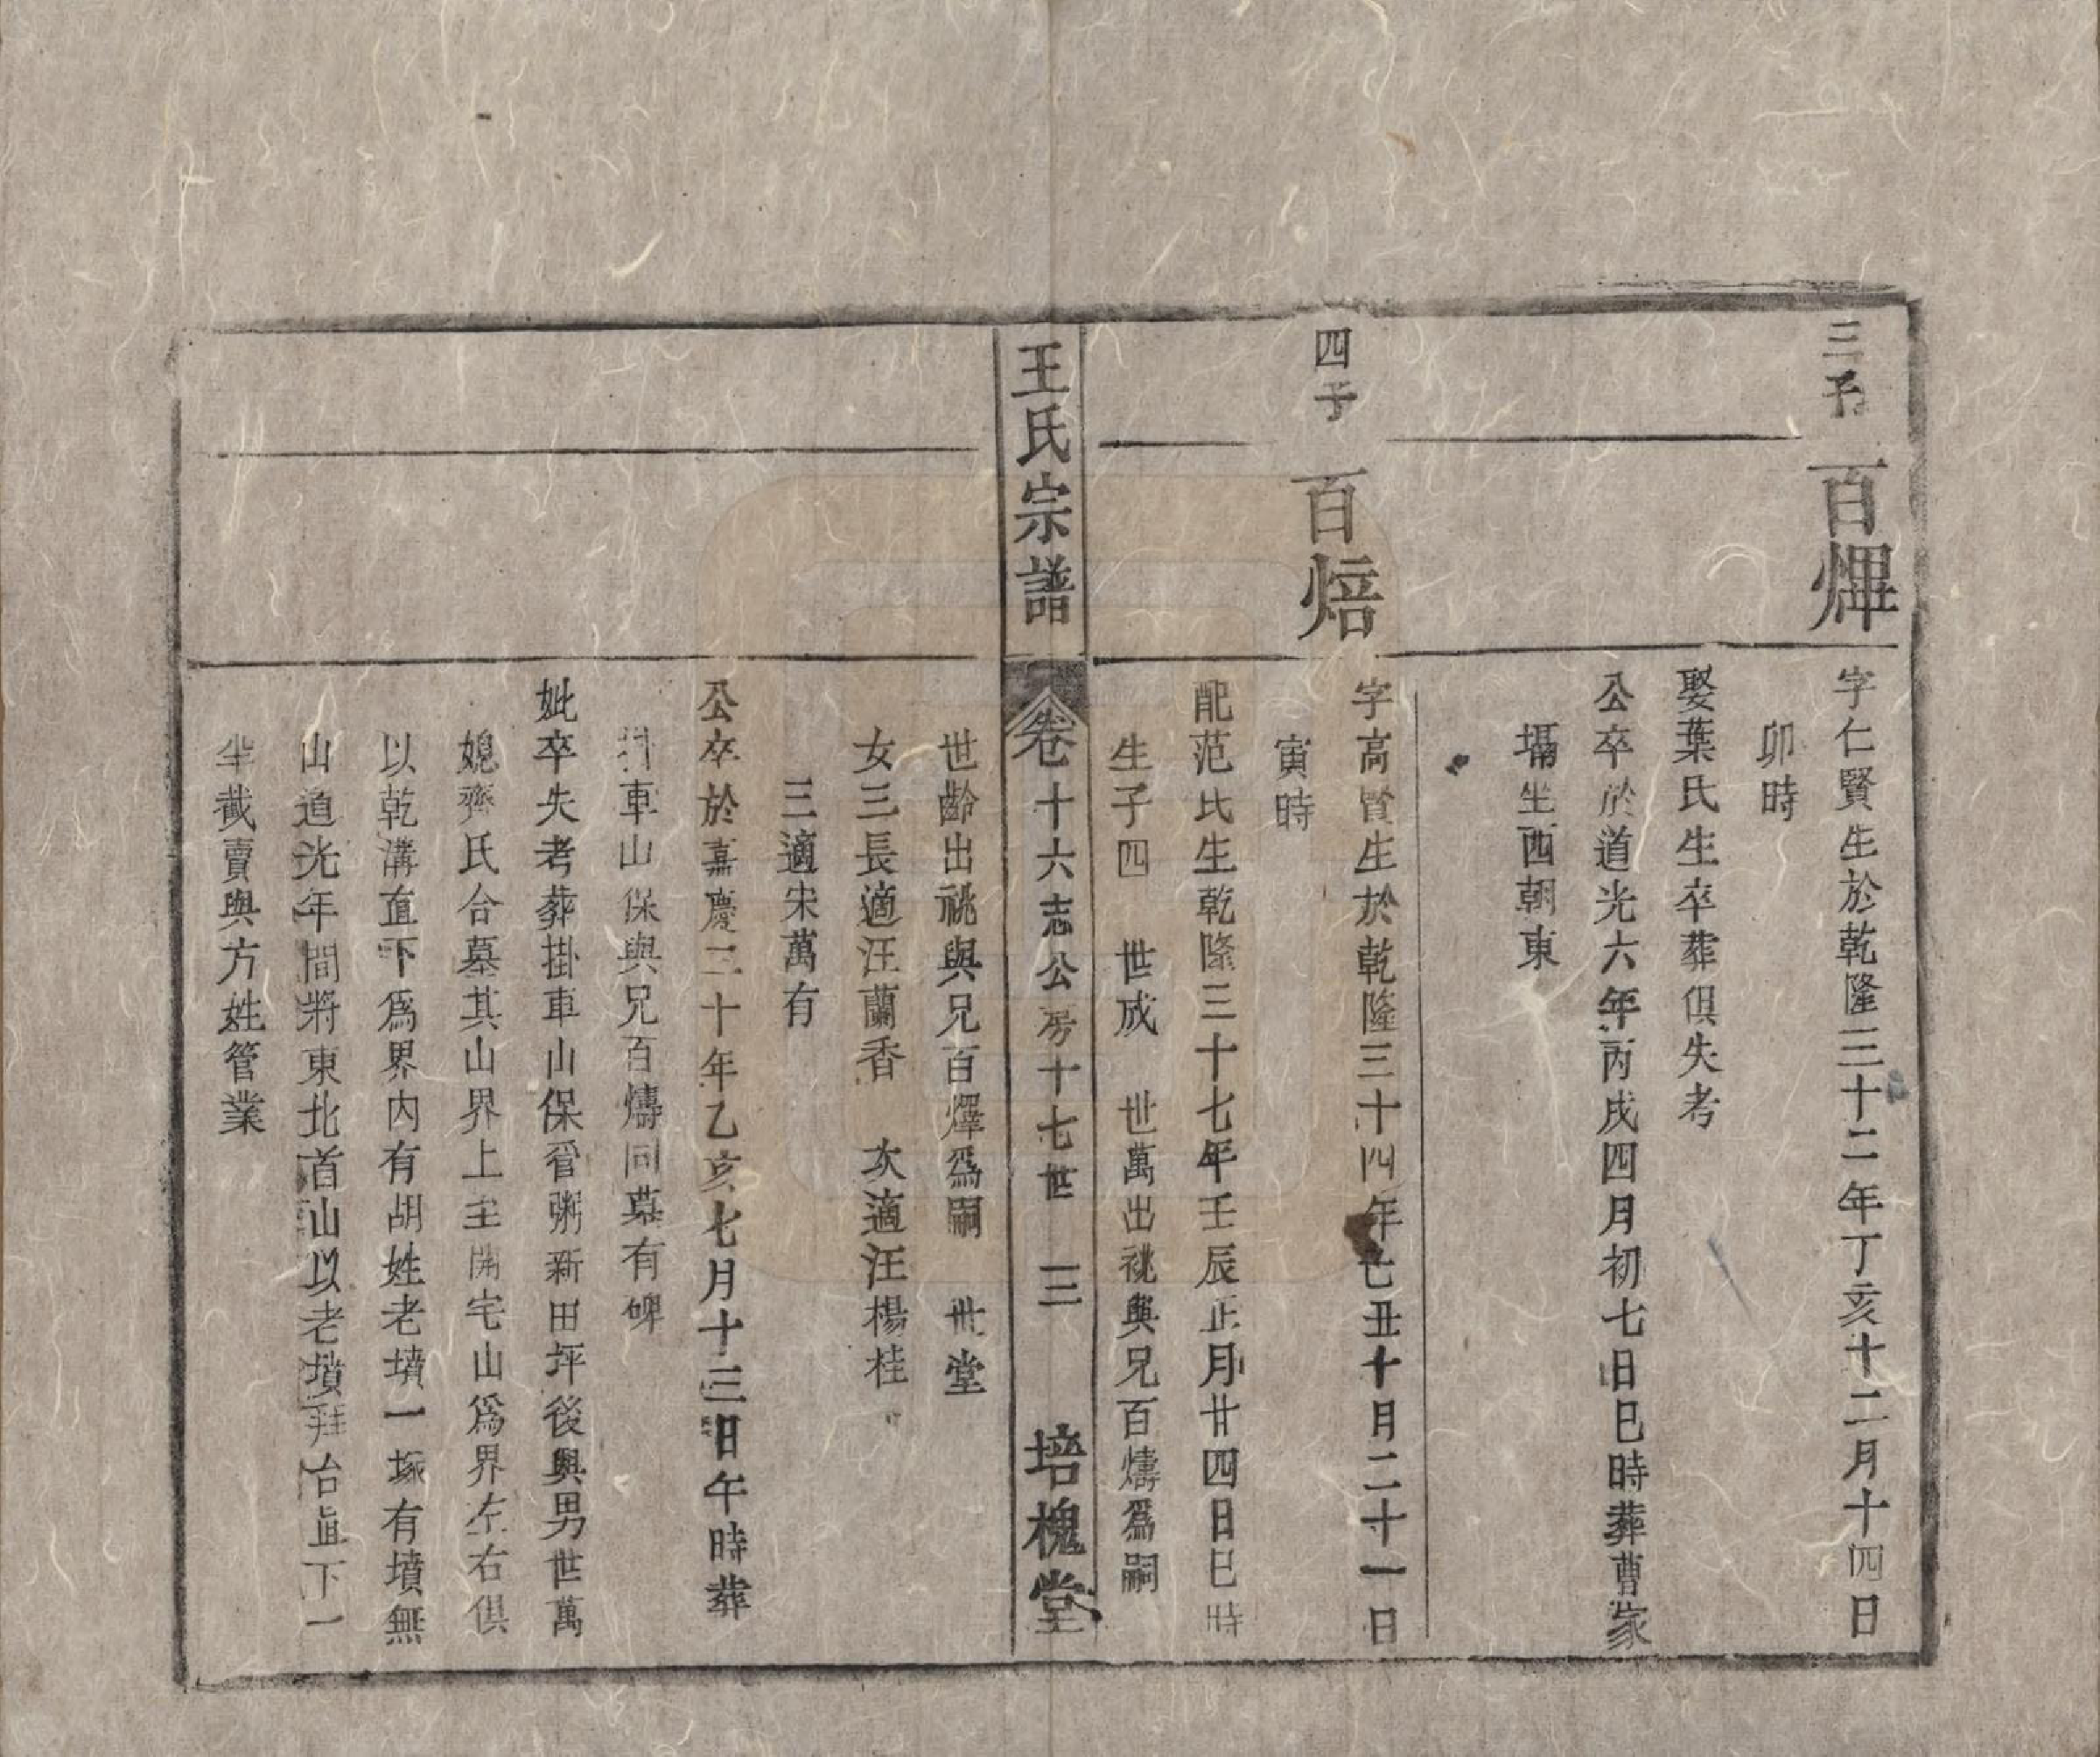 三子
百㷸
字仁賢生於乾隆三十二年丁亥十二月十四日
卯時
娶葉氏生卒葬俱失考
公卒於道光六年丙戌四月初七日巳時葬曹家
塥坐西朝東
四子
百焙
字高賢生於乾隆三十四年己丑十月二十一日
寅時
配范氏生乾隆三十七年壬辰正月廿四日巳時
生子四 世成 世萬出祧與兄百燽爲嗣
王氏宗譜 卷十六志公房十七世 三 培槐堂
世齡出祧與兄百燡爲嗣 世堂
女三長適汪蘭香 次適汪楊桂
三適宋萬有
公卒於嘉慶二十年乙亥七月十三日午時葬
掛車山保與兄百燽同墓有碑
妣卒失考葬掛車山保管粥新田坪後與男世萬
媳齊氏合墓其山界上至開宅山爲界左右俱
以乾溝直下爲界內有胡姓老墳一塚有墳無
山道光年間將東北首山以老墳拜台直下一
半截賣與方姓管業